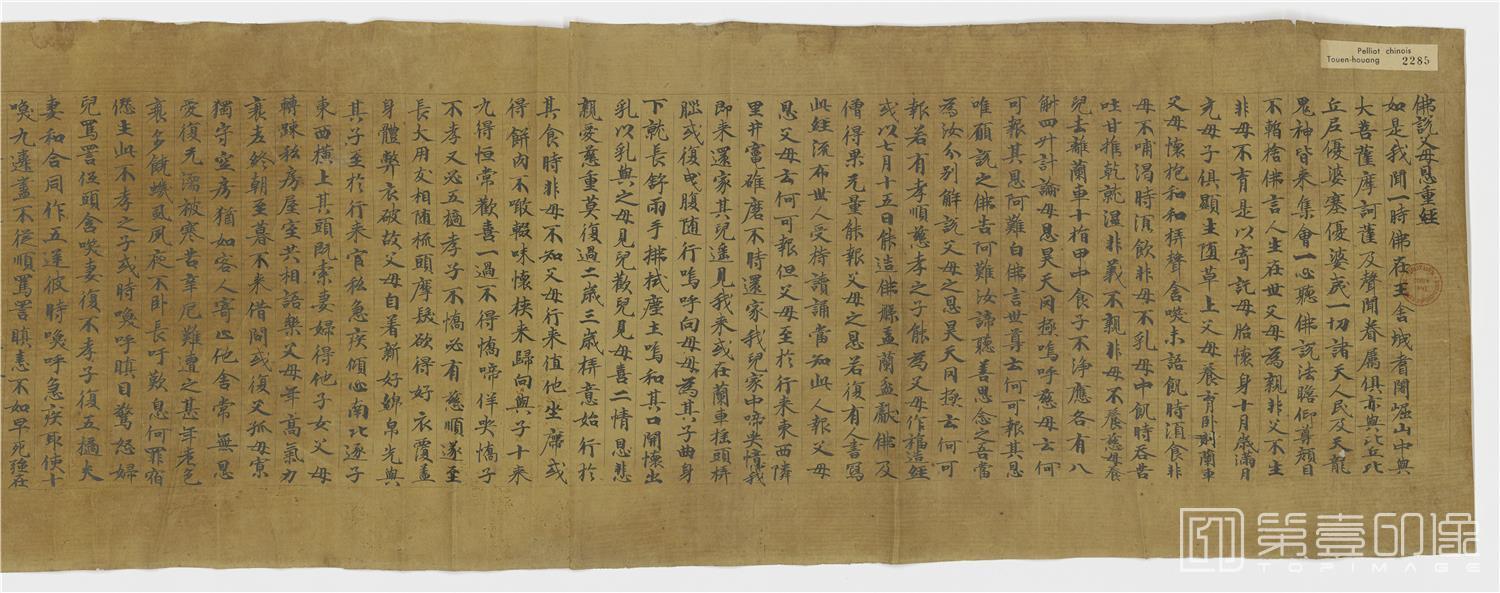 Pelliot chinois
Touen-houang 2285
佛說父母恩重經
如是我聞一時佛在王舍城耆闍崛山中與
大菩薩摩訶薩及聲聞眷屬俱亦與比丘比
丘尼優婆塞優婆夷一切諸天人民及天龍
鬼神皆來集會一心聽佛說法瞻仰尊顏目
不暫捨佛言人生在世父母為親非父不生
非母不育是以寄託母胎懷身十月歲滿月
充母子俱顯生墮草上父母養育臥則蘭車
父母懷抱和和弄聲含笑未語飢時須食非
母不哺渴時須飲非母不乳母中飢時吞苦
吐甘推乾就濕非義不親非母不養慈母養
兒去離蘭車十指甲中食子不淨應各有八
斛四斗計論母恩昊天罔極嗚呼慈母云何
可報其恩阿難白佛言世尊云何可報其恩
唯願說之佛告阿難汝諦聽善思念之吾當
為汝分別解說父母之恩昊天罔極云何可
報若有孝順慈孝之子能為父母作福造經
或以七月十五日能造佛槃盂蘭盆獻佛及
僧得果无量能報父母之恩若復有人書寫
此經流布世人受持讀誦當知此人報父母
恩父母云何可報但父母至於行來東西隣
里井竈碓磨不時還家我兒家中啼哭憶我
即来還家其兒遙見我来或在蘭車搖頭弄
腦或復曳腹隨行嗚呼向母母為其子曲身
下就長舒兩手拂拭塵土嗚和其口開懷出
乳以乳與之母見兒歡兒見母喜二情恩悲
親愛慈重莫復過二歲三歲弄意始行於
其食時非母不知父母行来值他坐席或
得餅肉不噉輟味懷挾来歸向與子十来
九得恒常歡喜一過不得憍啼佯哭憍子
不孝又必五擿孝子不憍必有慈順遂至
長大朋友相隨梳頭摩髮欲得好衣覆蓋
身體弊衣破故父母自著新好綿帛先與
其子至於行来官私急疾傾心南北逐子
東西橫上其頭既索妻婦得他子女父母
轉疎私房屋室共相語樂父母年高氣力
衰老終朝至暮不来借問或復父孤母寡
獨守空房猶如客人寄止他舍常無恩
愛復无濡被寒苦辛厄難遭之甚年老色
衰多饒蟣虱夙夜不臥長吁歎息何罪宿
愆生此不孝之子或時喚呼瞋目驚怒婦
兒罵詈低頭含笑妻復不孝子復五擿夫
妻和合同作五逆彼時喚呼急疾取使十
喚九違盡不從順罵詈瞋恚不如早死強在
第壹印像
TOPIMAGE